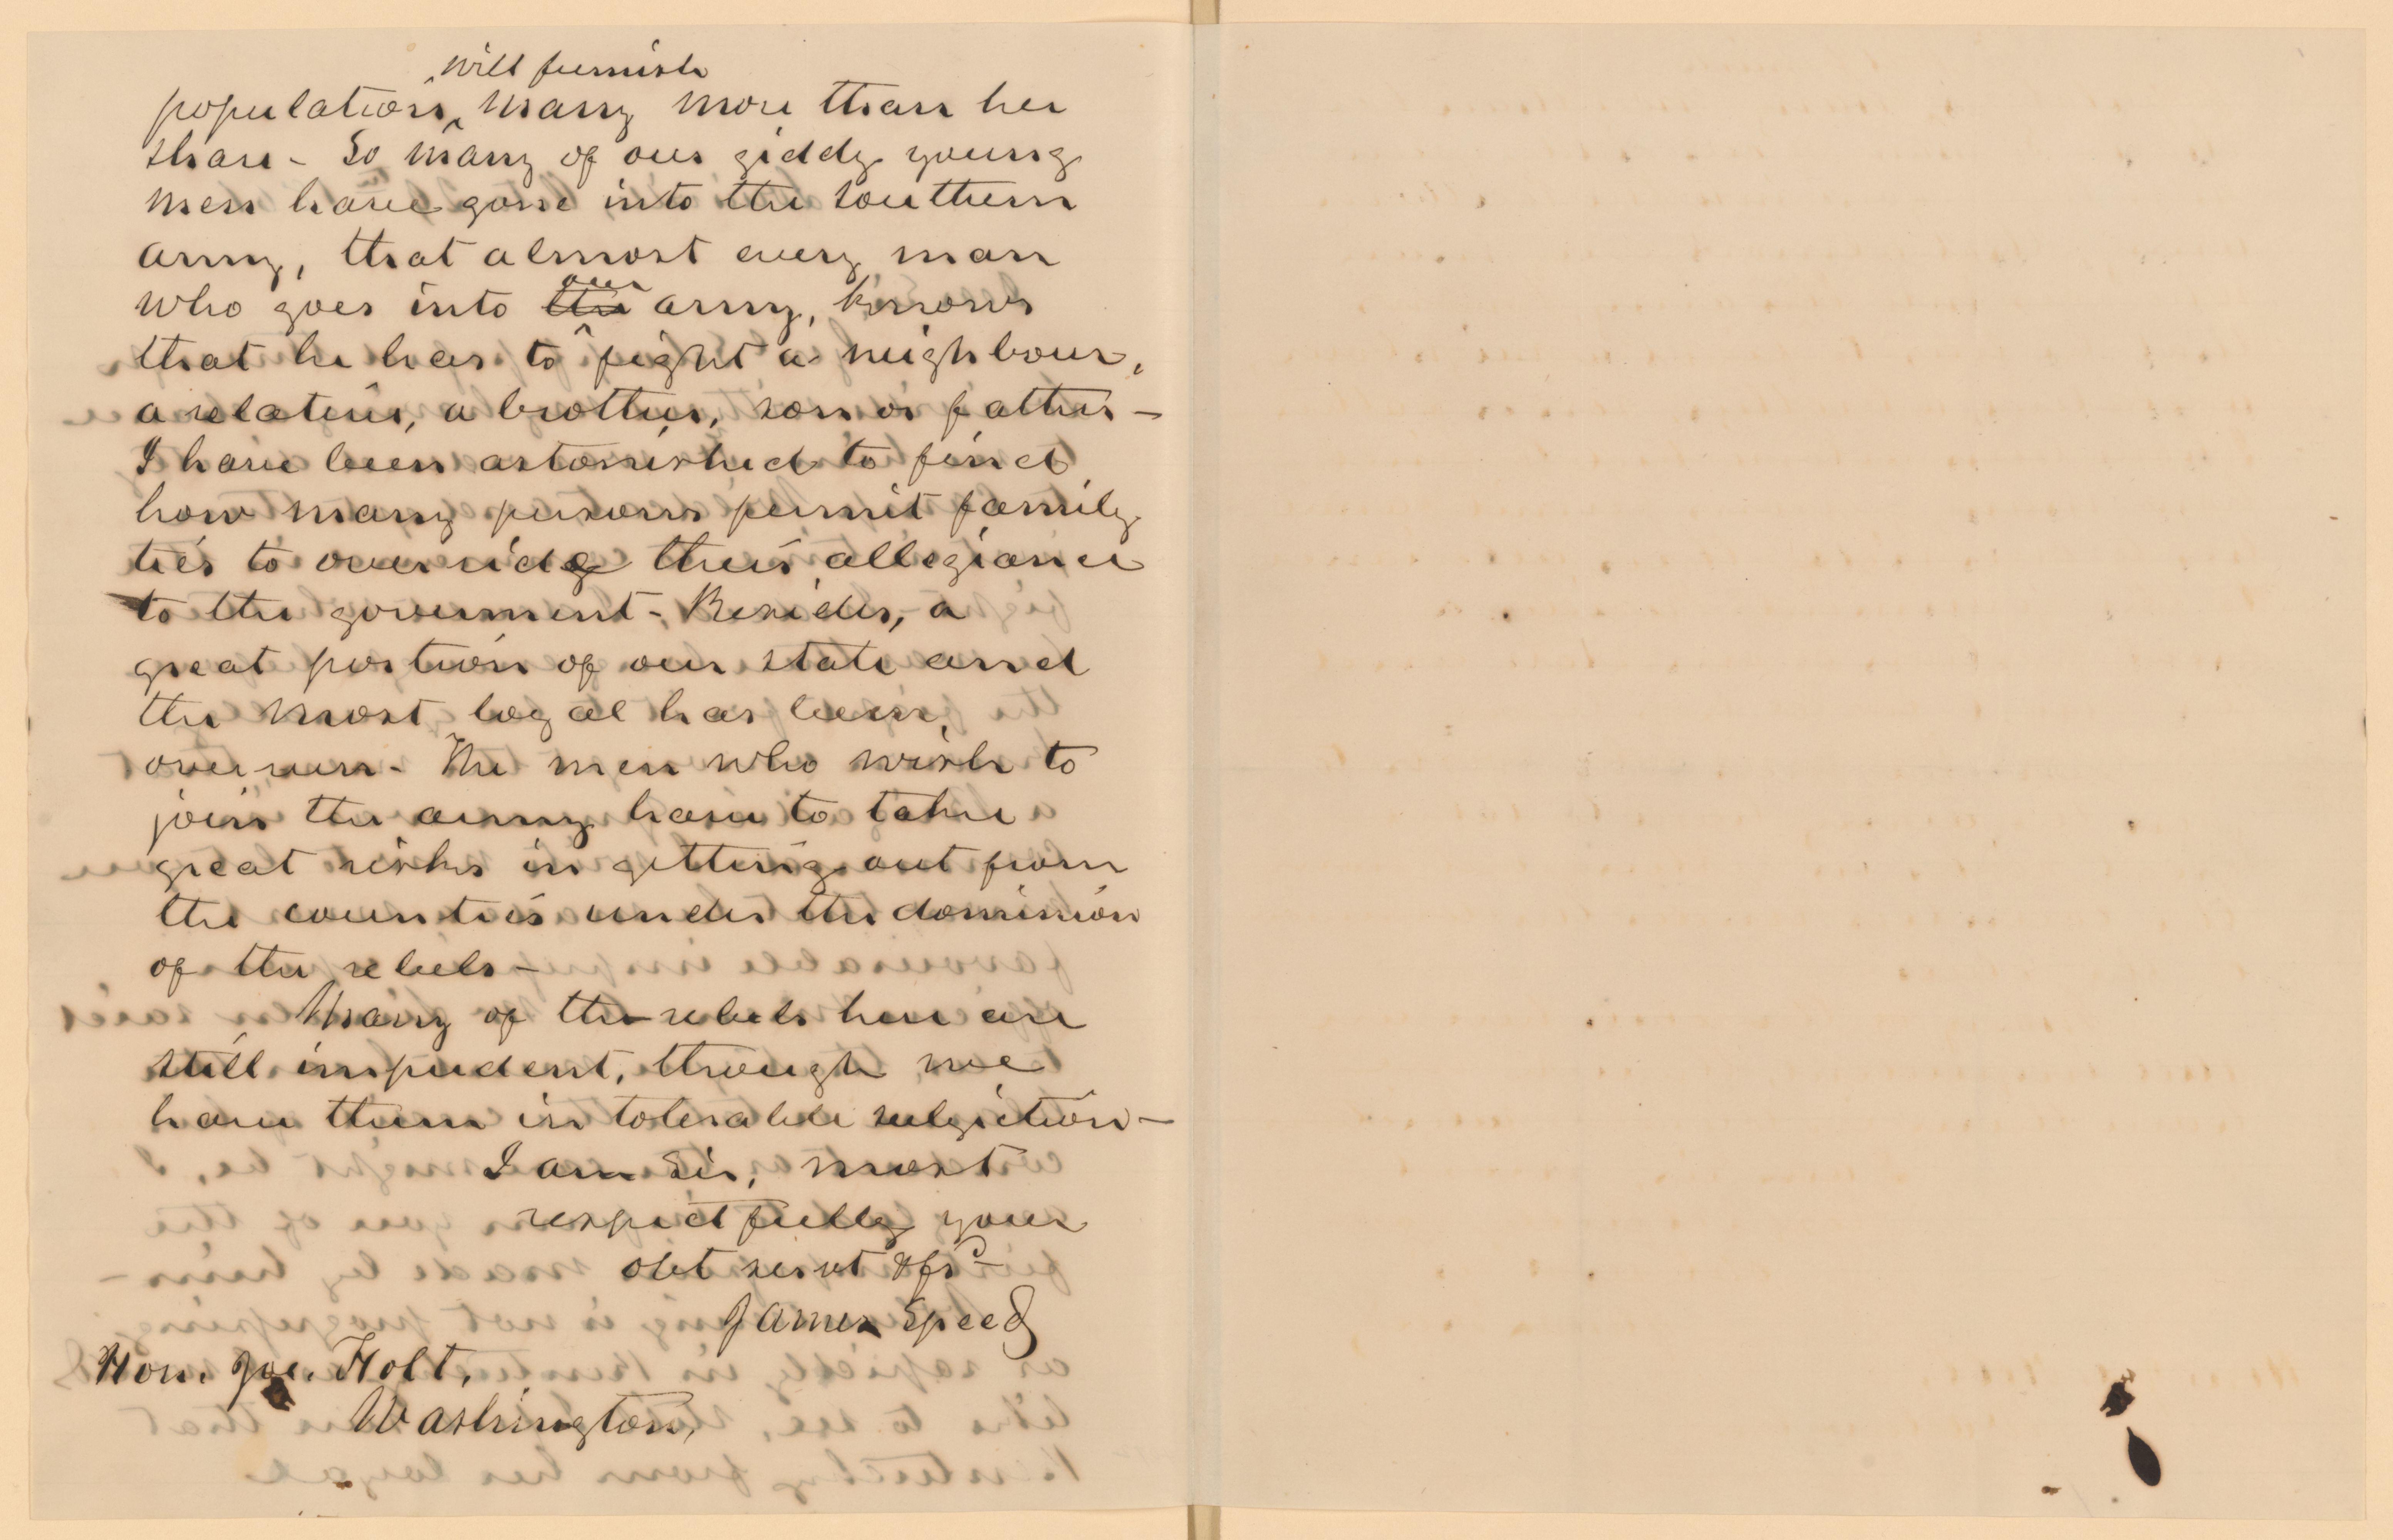 will furnish
population, many more than her
share - So many of our giddy young
men have gone into the Southern
army, that almost every man
who goes into the our army, knows
that he has to fight a neighbour,
a relative, a brother, son or father -
I have been astonished to find
how many persons permit family
ties to override their allegiance
to the goverment - Besides, a
great portion of our state and
the most loyal has been
over run - The men who wish to
join the army have to take
great risks in getting out from
the counties under the dominion
of the rebels -
Many of the rebels here are
still impudent, though we
have them in tolerable subjection -
I am Sir, most
respectfully your
obt servt &
James Speed
Hon. Jos. Holt,
Washington,